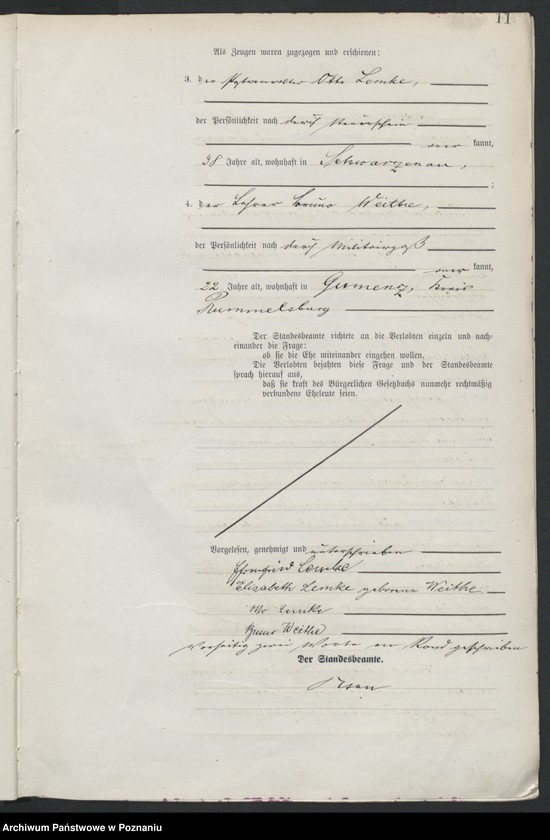 11
Als Zeugen waren zugezogen und erschienen:
3. der Otto Lemke,
der Persönlichkeit nach durch Steuerschein
kannt,
38 Jahre alt, wohnhaft in Schwarzenau,
;
4. der Lehrer Bruno Weithe,
der Persönlichkeit nach durch Militärpaß
kannt,
22 Jahre alt, wohnhaft in Gumenz, Kreis
Rummelsburg
Der Standesbeamte richtete an die Verlobten einzeln und nach-
einander die Frage:
ob sie die Ehe miteinander eingehen wollen.
Die Verlobten bejahten diese Frage und der Standesbeamte
sprach hierauf aus,
daß sie kraft des Bürgerlichen Gesetzbuchs nunmehr rechtmäßig
verbundene Eheleute seien.
Vorgelesen, genehmigt und unterschrieben
Lemke
Elisabeth Lemke geborene Weithe
Otto Lemke
Bruno Weithe
Vorseitig zwei Worte am Rand geschrieben
Der Standesbeamte.
Archiwum Państwowe w Poznaniu